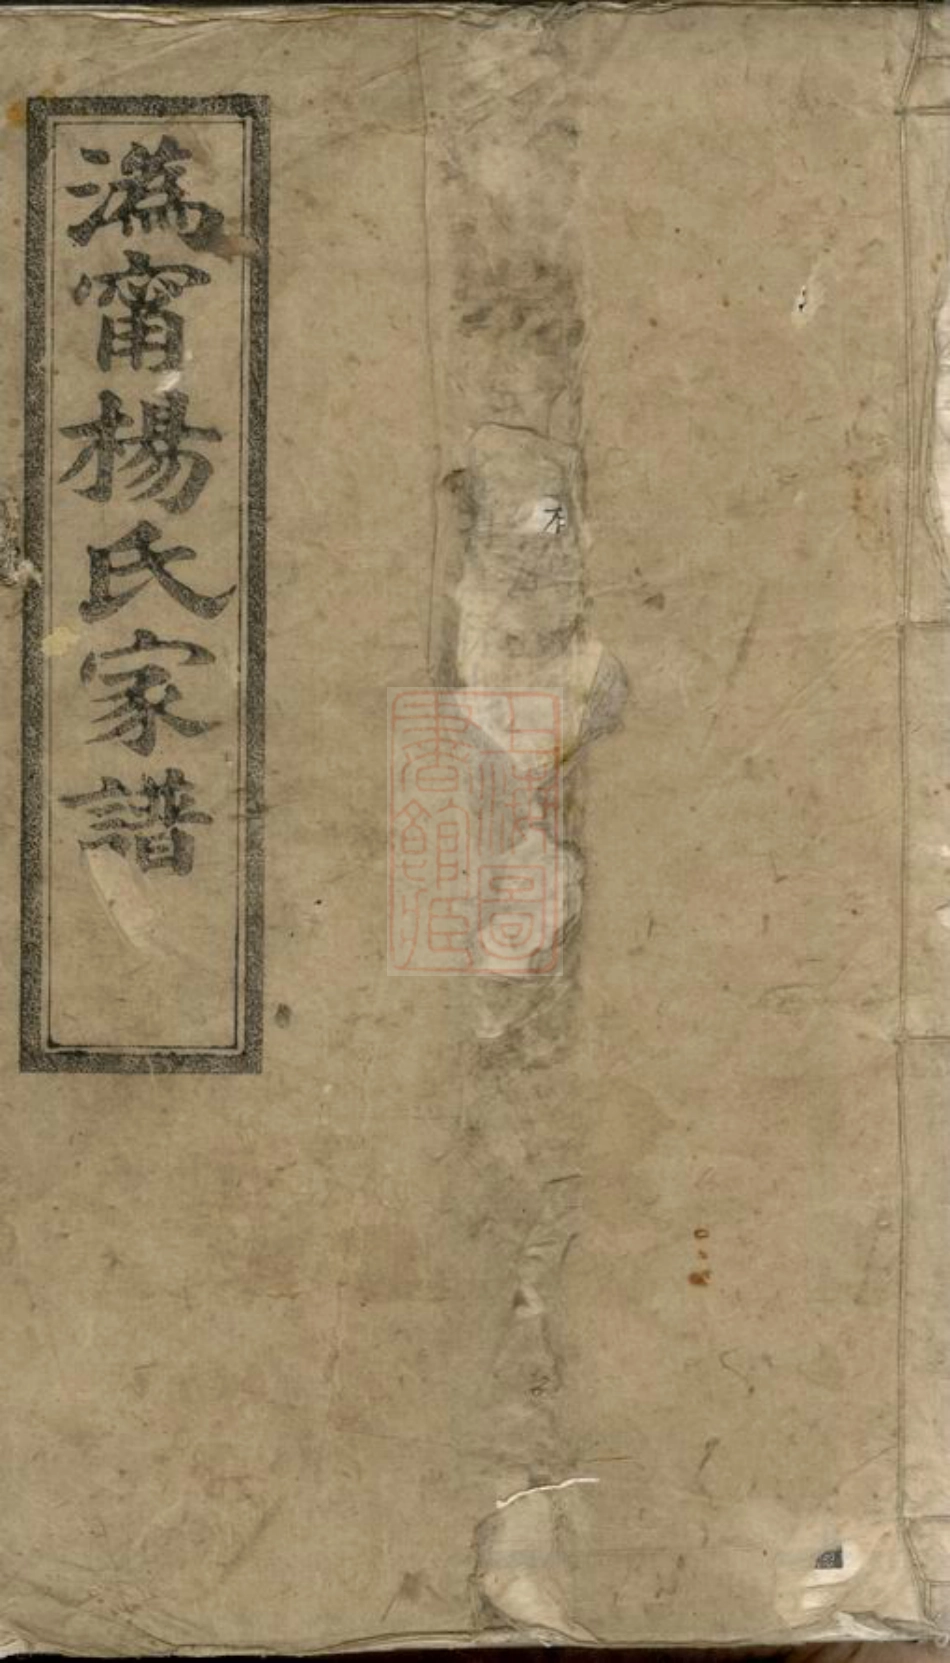 溈甯楊氏家譜
上海圖
書館藏